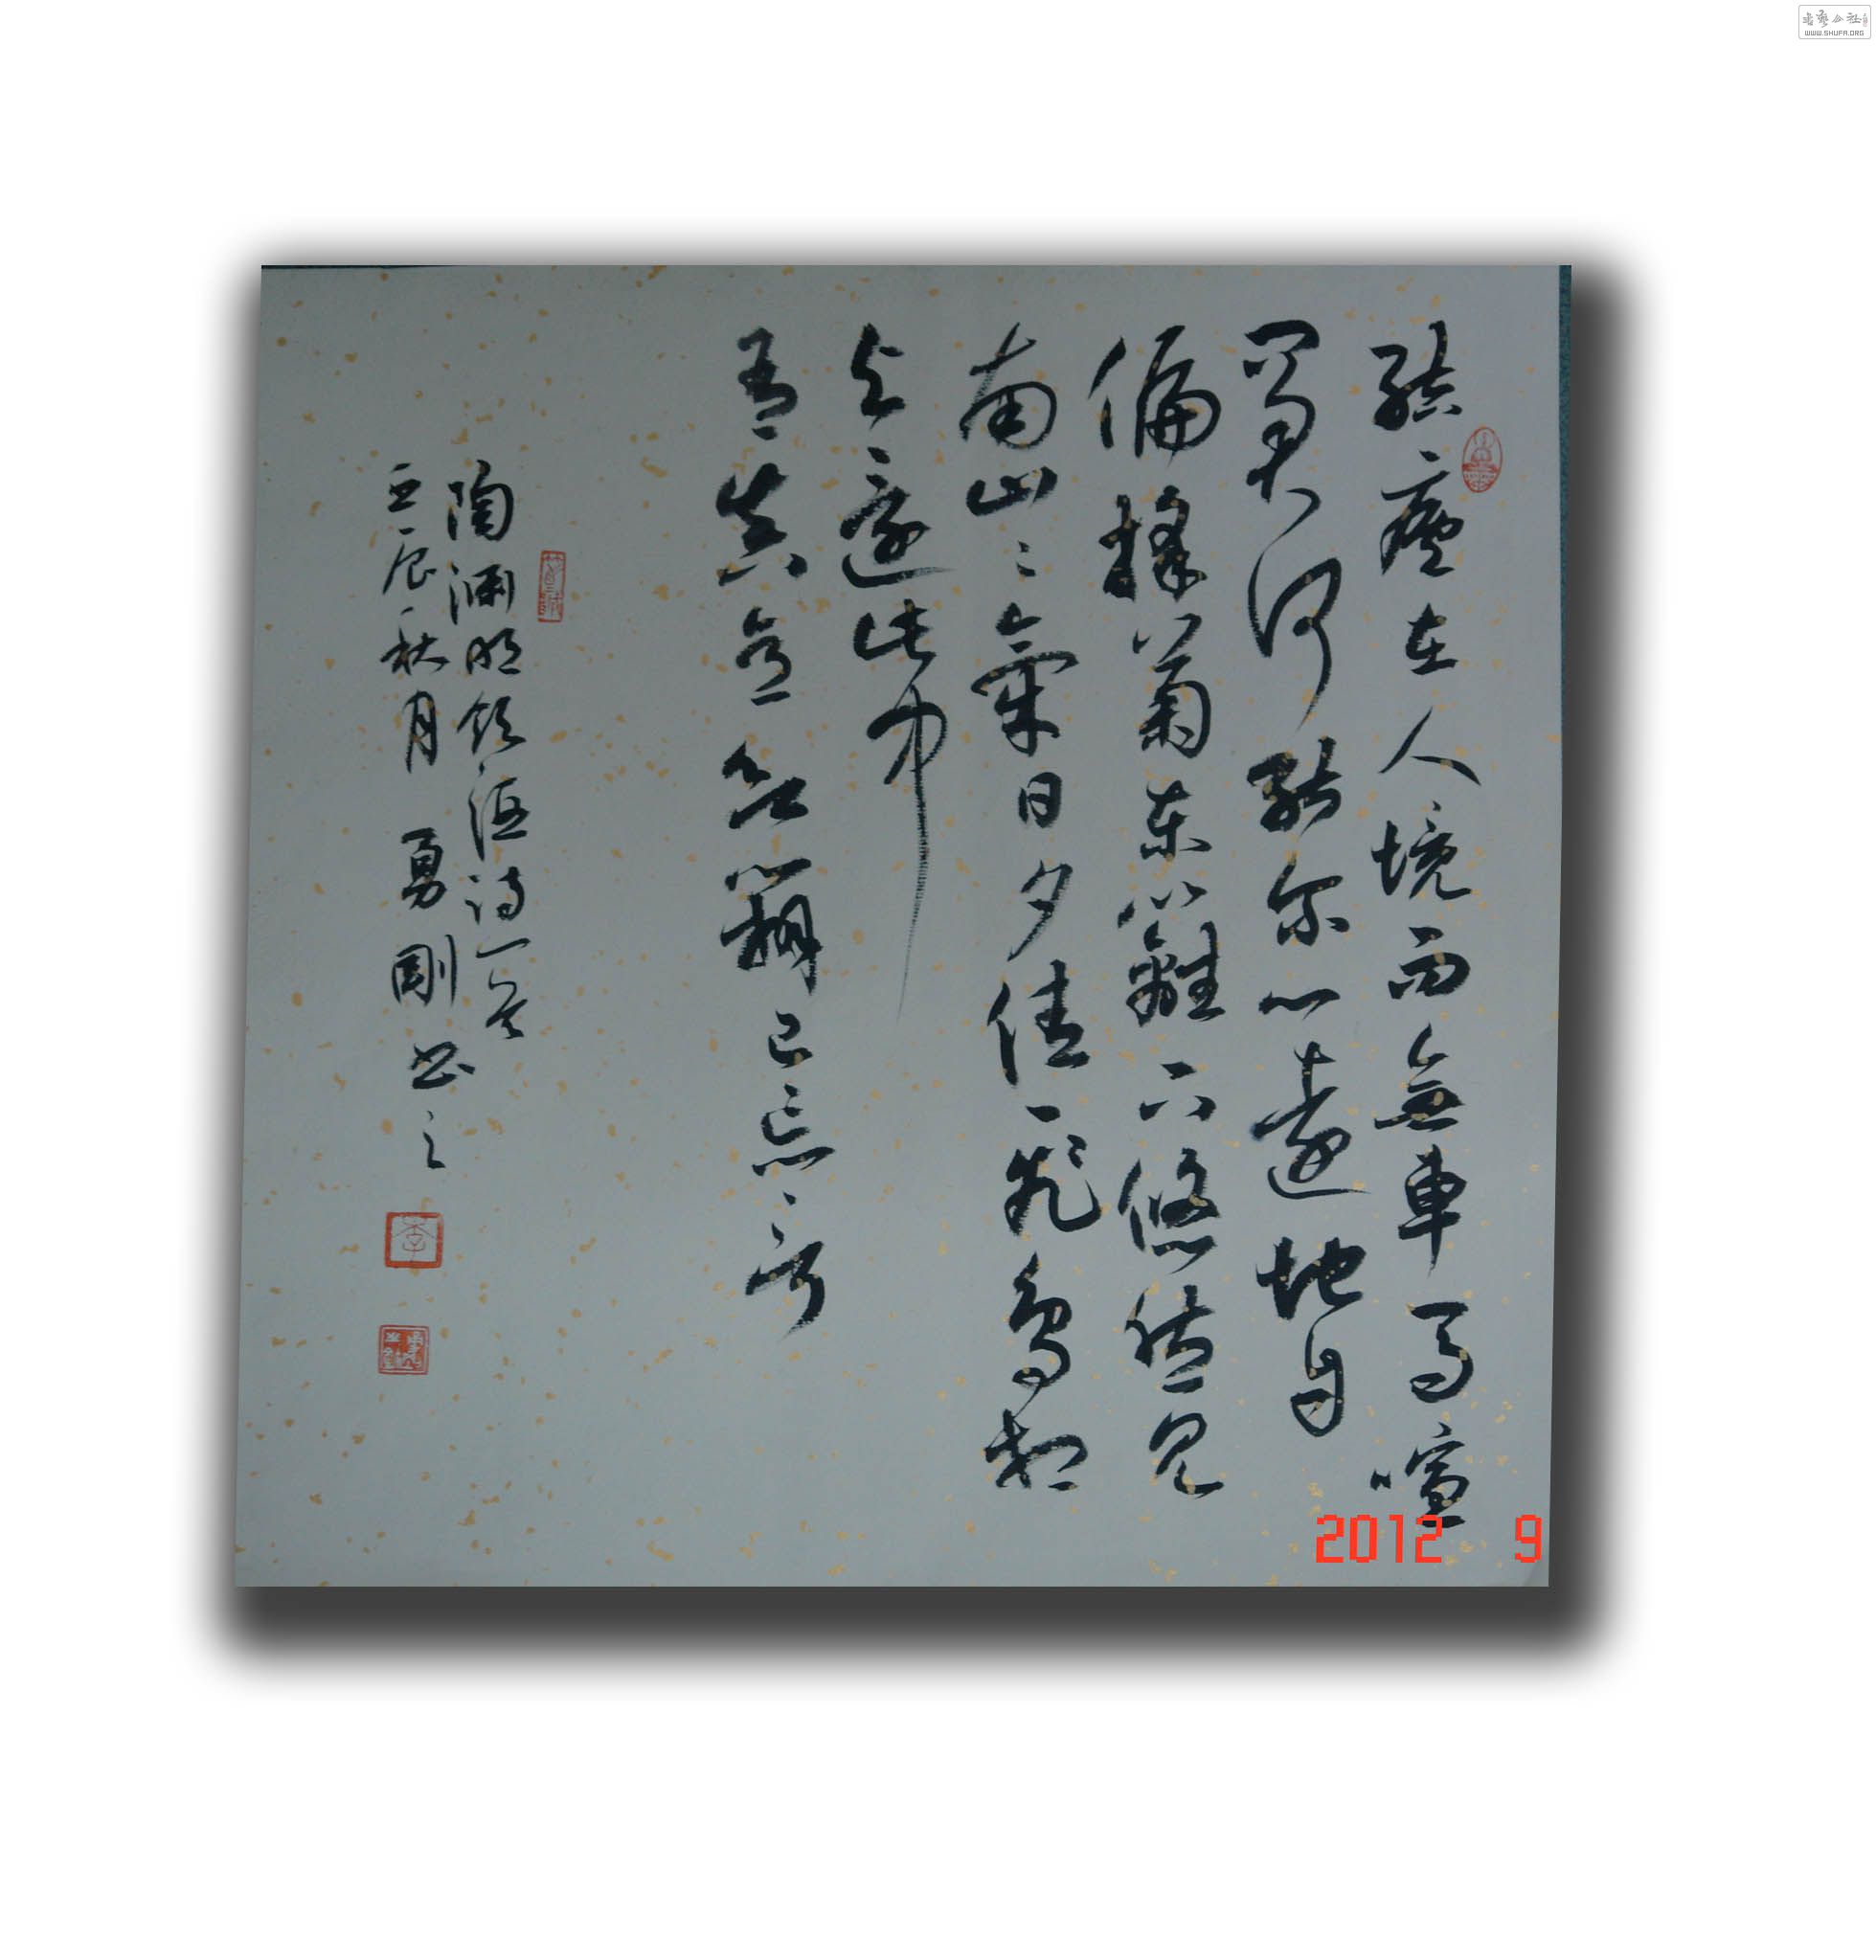 結廬在人境而無車馬喧
問君何能尔心遠地自
偏採菊東籬下悠然見
南山山氣日夕佳飛鳥相
與還此中
有真意欲辯已忘言
陶渊明飲酒詩一首
壬辰秋月勇剛书之
李
2012 9
WWW.SHUFA.ORG